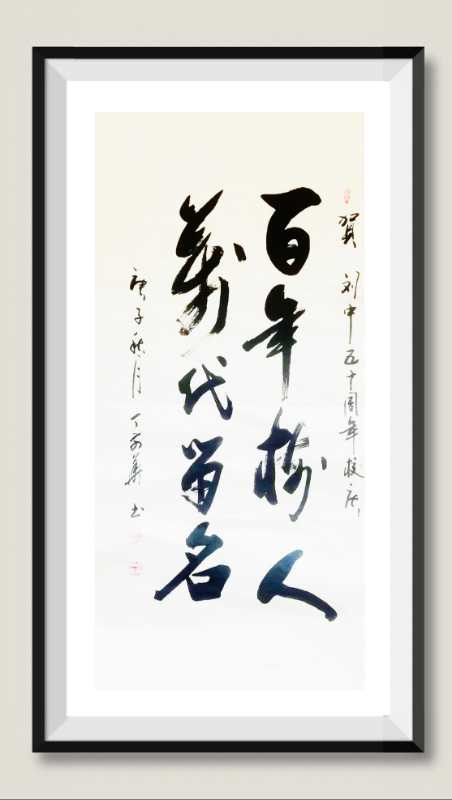 贺 刘中五十周年校庆
百年樹人
萬代留名
庚子秋月 丁前華 书